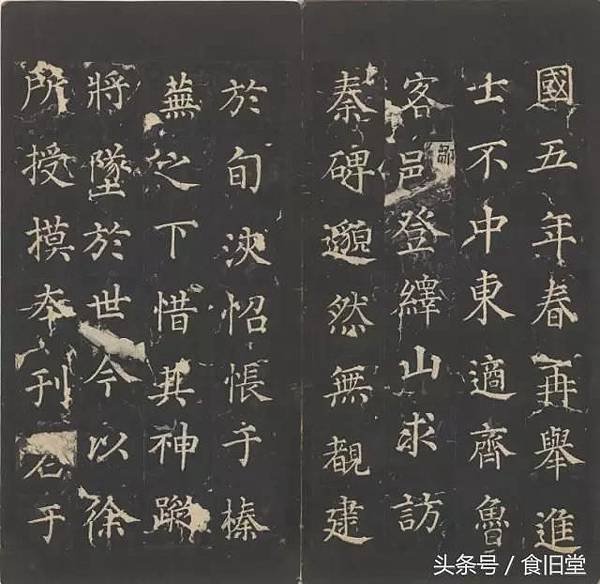 國五年春再舉進
士不中東適齊魯
客邑登繹山求訪
秦碑邈然無覩建
於旬浹怊悵于榛
蕪之下惜其神蹤
將墜於世今以徐
所授摸夲刊石于
头条号 / 食旧堂